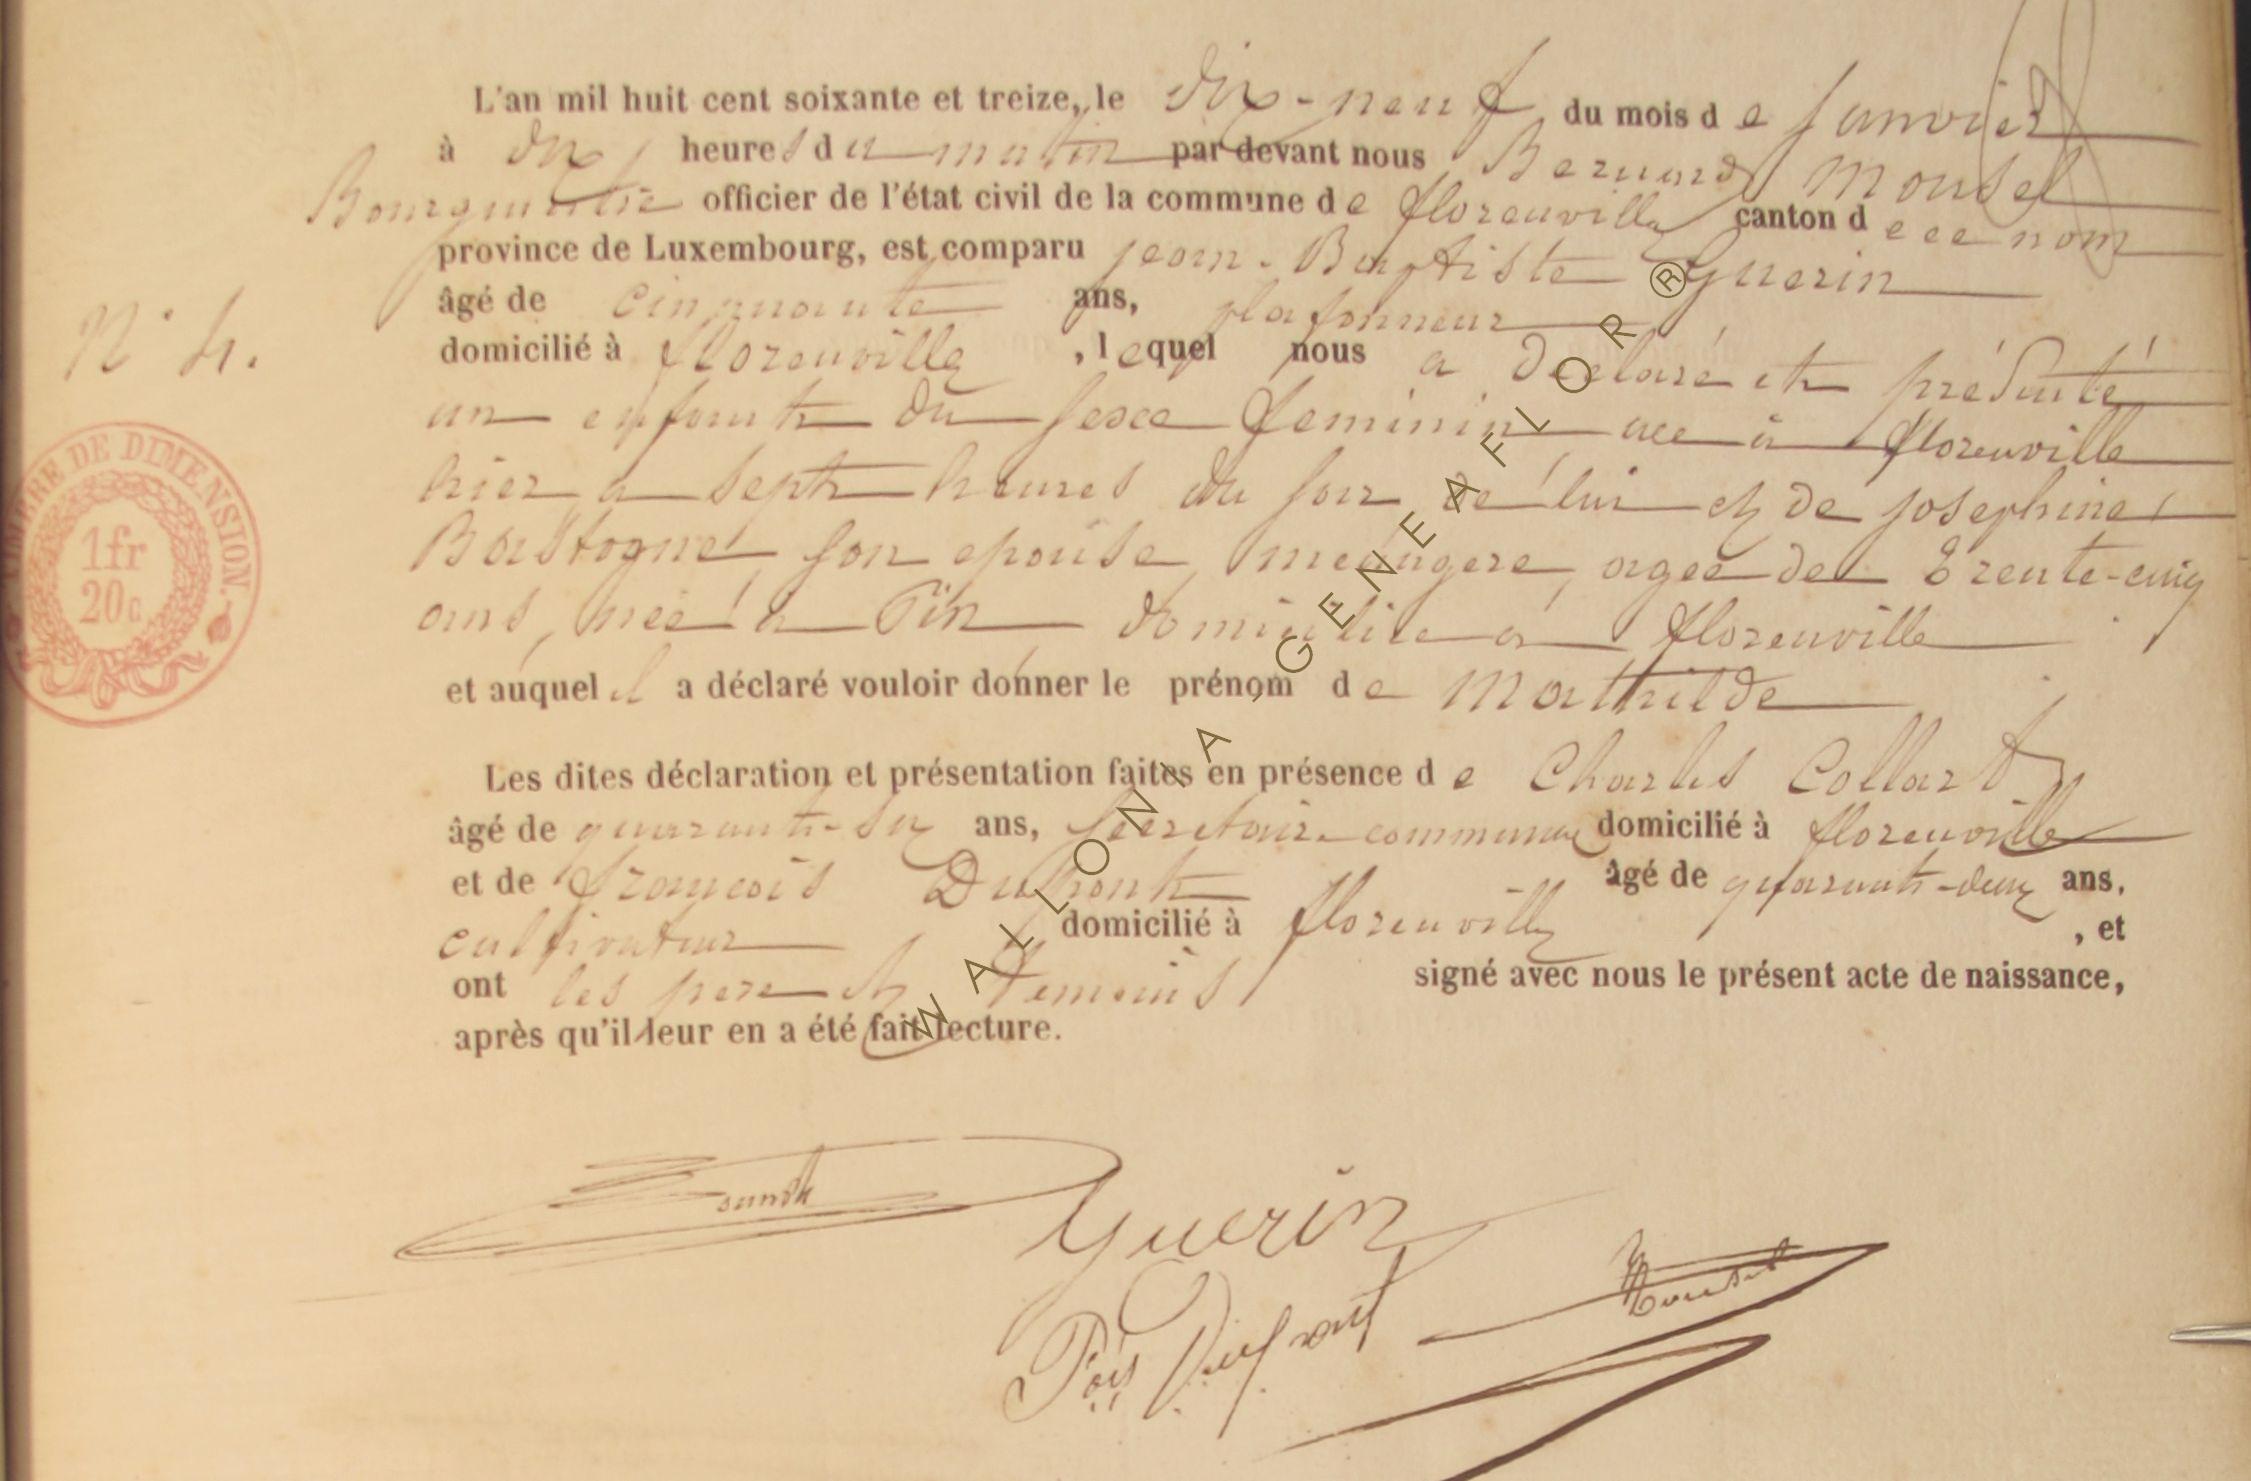 L'an mil huit cent soixante et treize, le dix-neuf du mois de Janvier
à dix heures du matin par devant nous Bernard Mousel
Bourgmestre officier de l'état civil de la commune de florenville canton de ce nom
province de Luxembourg, est comparu jean-Baptiste Guerin
âgé de cinquante ans, plafonneur
N° 4.
domicilié à florenville, lequel nous a déclaré et présenté
un enfant du sexe feminin née à florenville
hier a sept heures du soir de lui et de josephine
Bastogne son epouse, menagere, agée de trente-cinq
ans, née à Pin domiciliée a florenville
et auquel il a déclaré vouloir donner le prénom de Mathilde
Les dites déclaration et présentation faites en présence de Charles Collart
âgé de quarante-six ans, Secretaire communal domicilié à florenville
et de françois Dupont âgé de quarante-deux ans,
cultivateur domicilié à florenville, et
ont les pere et temoins signé avec nous le présent acte de naissance,
après qu'il leur en a été fait lecture.
TIMBRE DE DIMENSION.
1fr
20c
Guerin
Mousel
WALLONIA, GENEAFLOR®